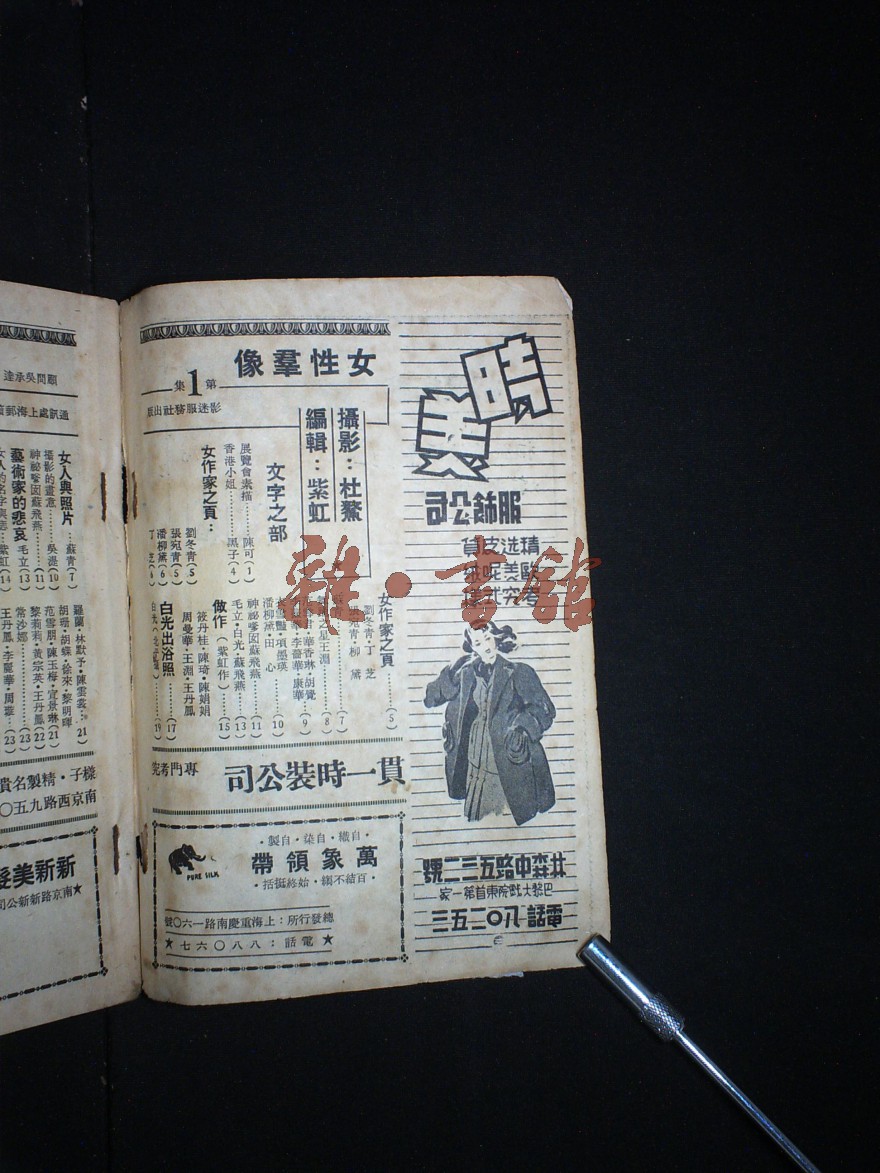 女性羣像
第1集
影迷服務社出版
攝影：杜鰲
編輯：紫虹
文字之部
展覽會素描……陳可（1）
香港小姐………黑子（4）
女作家之頁：
劉冬青（5）
張宛青（5）
潘柳黛（6）
丁芝（6）
女作家之頁……（5）
劉冬青·丁芝
張宛青·柳黛
（7）
之星王淵……（8）
華香琳·胡覺
李薔華·康華……（9）
項墨瑛……（10）
潘柳黛·田心
神祕嗲囡蘇飛燕……（11）
毛立·白光·蘇飛燕……（13）
做作（紫虹作）……（15）
筱丹桂·陳琦·陳娟娟
周曼華·王淵·王丹鳳
白光出浴照……（17）
（19）
貫一時裝公司
專門考究
自織·自染·自製
萬象領帶
百結不縐·始終挺括
PURE SILK
總發行所：上海重慶南路一六〇號
★電話：八八〇六七★
時美
服飾公司
精选皮貨
歐美呢絨
考究式樣
北森中路五三二號
巴黎大戲院東首第一家
電話八〇二五三
顧問吳承達
通訊處上海郵
女人與照片……蘇青（7）
攝影的畫意……吳湜（10）
神祕嗲囡蘇飛燕……（11）
藝術家的悲哀……毛立（13）
紫虹（14）
羅蘭·林默予·陳雲裳（21）
胡珊·胡蝶·徐來·黎明暉
范雪朋·陳玉梅·宣景琳（21）
黎莉莉·黃宗英·王丹鳳（22）
常沙娜……（23）
王丹鳳·李麗華·周璇（23）
樣子·精製名貴
南京西路九五〇
新新美髮
★南京路新新公司
雜·書館